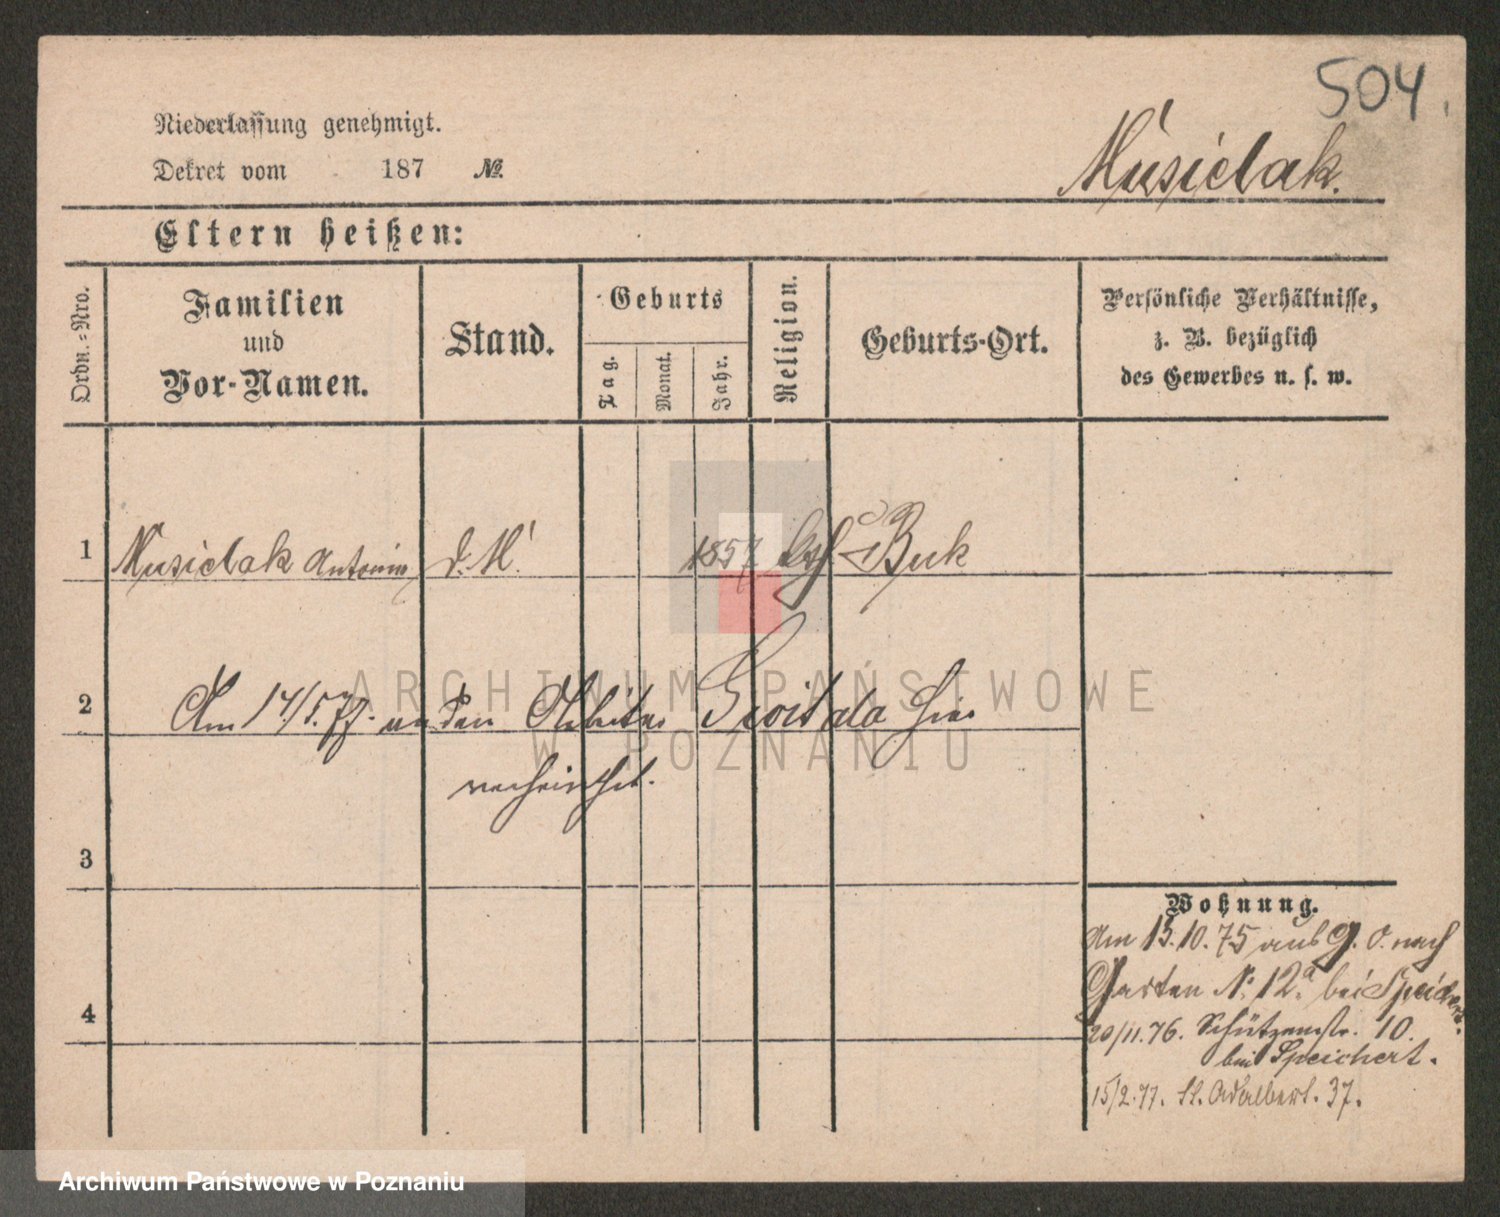 504.
Niederlassung genehmigt.
Dekret vom 187 №
Musielak.
Eltern heißen:
Ordn.-Nro.
Familien
und
Vor-Namen.
Stand.
Geburts
Tag.
Monat.
Jahr.
Religion.
Geburts-Ort.
Persönliche Verhältnisse,
z. B. bezüglich
des Gewerbes u. s. w.
1 Musielak Antonin d. M. 1857 kth Buk
2 Am 14/5.77. an den Arbeiter hier
verheirathet.
3
Wohnung.
Am 13.10.75 aus G. O. nach
Garten N: 12a bei Speichert.
4
20/11.76. Schützenstr. 10.
bei Speichert.
15/2.77. St. Adalbert. 37.
ARCHIWUM PAŃSTWOWE
W POZNANIU
Archiwum Państwowe w Poznaniu